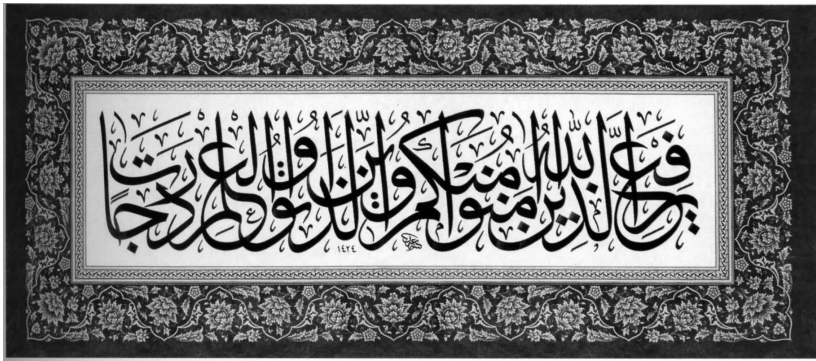 يرفع الله الذين آمنوا منكم والذين أوتوا العلم درجات
١٤٢٤